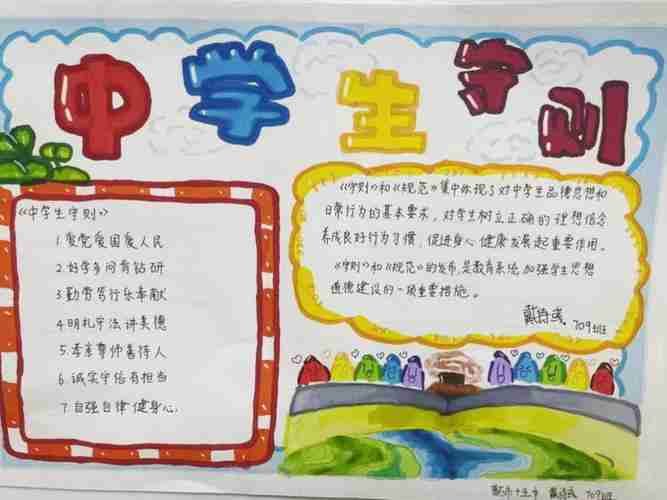 中学生守则
《中学生守则》
1.爱党爱国爱人民
2.好学多问有钻研
3.勤劳笃行乐奉献
4.明礼守法讲美德
5.孝亲尊师善待人
6.诚实守信有担当
7.自强自律健身心.
《守则》和《规范》集中体现了对中学生品德思想和
日常行为的基本要求。对学生树立正确的理想信念
养成良好行为习惯,促进身心健康发展起重要作用。
《守则》和《规范》的发布,是教育系统加强学生思想
道德建设的一项重要措施。
戴诗 709班
十五中 戴诗 709班